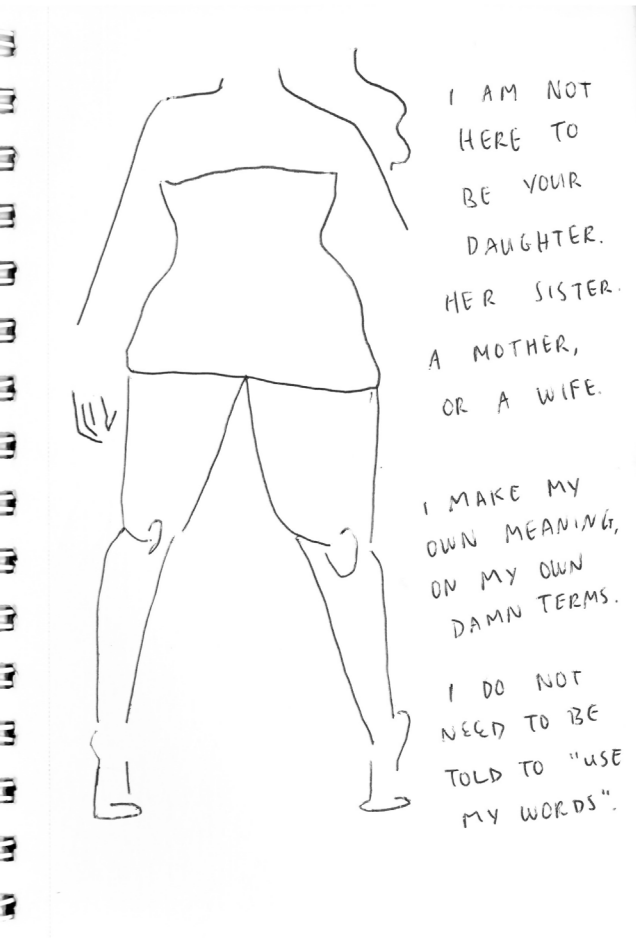 I AM NOT
HERE TO
BE YOUR
DAUGHTER.
HER SISTER.
A MOTHER,
OR A WIFE.
I MAKE MY
OWN MEANING,
ON MY OWN
DAMN TERMS.
I DO NOT
NEED TO BE
TOLD TO "USE
MY WORDS".